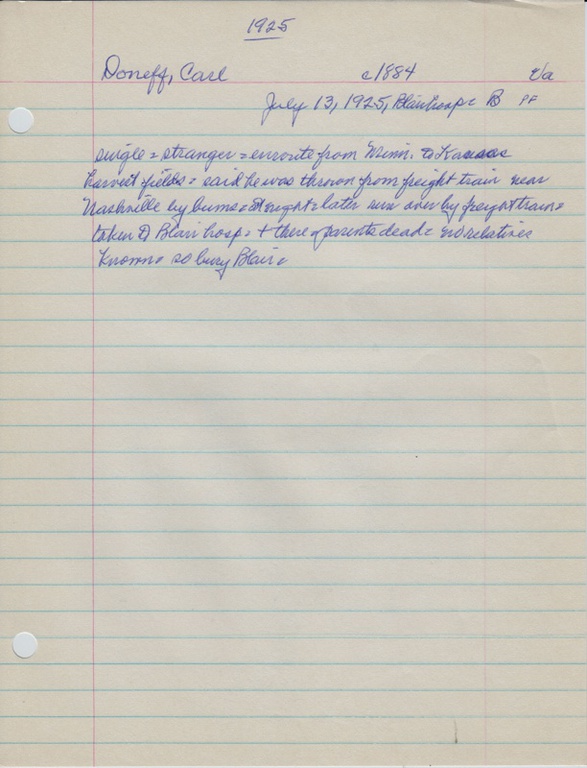 1925
Doneff, Carl c1884 r/a
July 13, 1925, Blair hosp = B PF
single = stranger = enroute from Minn. to Kansas
harvest fields = said he was thrown from freight train near
Nashville by bums = at night = later run over by freight train =
taken to Blair hosp = + there = parents dead = no relatives
known = so bury Blair =